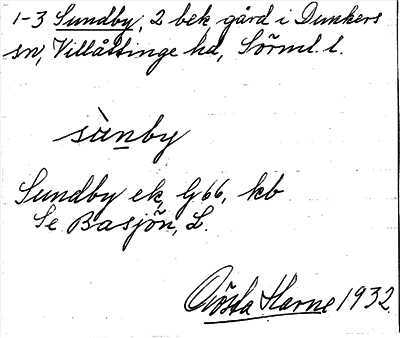 1-3 Sundby, 2 bek gård i Dunkers
sn, Villåttinge hd, Sörml. l.
sùnby
Sundby ek, G66, kb
Se Basjön, L.
Gösta Harne 1932